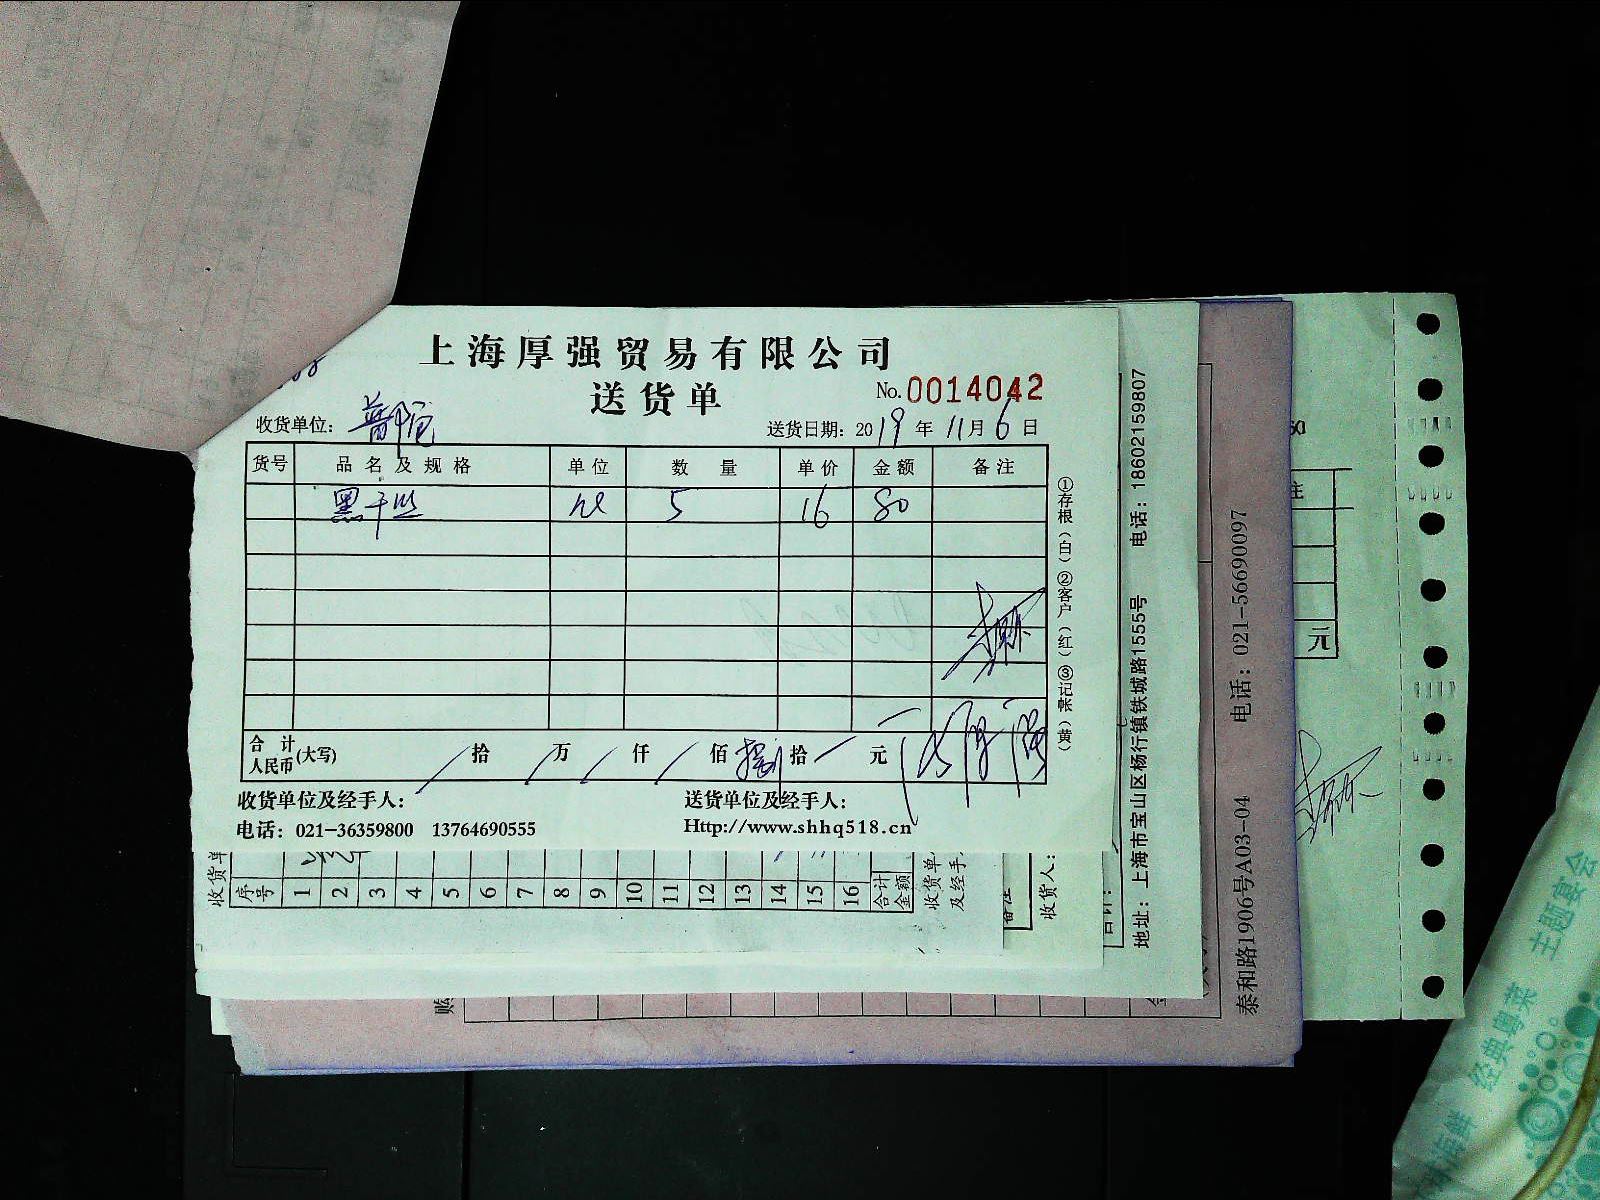 上海厚强贸易有限公司
送货单
No. 0014042
收货单位：
送货日期：2019年11月6日
货号 品名及规格 单位 数量 单价 金额 备注
黑干丝 5 16 80
合计人民币(大写) 拾 万 仟 佰 捌拾 元
收货单位及经手人： 送货单位及经手人：
电话：021-36359800 13764690555 Http://www.shhq518.cn
①存根（白）②客户（红）③记帐（黄）
地址：上海市宝山区杨行镇铁城路1555号 电话：18602159807
泰和路1906号A03-04 电话：021-56690097
收货单
序号 1 2 3 4 5 6 7 8 9 10 11 12 13 14 15 16 合计金额
收货单
及经手
备注
收货人：
合计：
元
主题宴会
经典粤菜